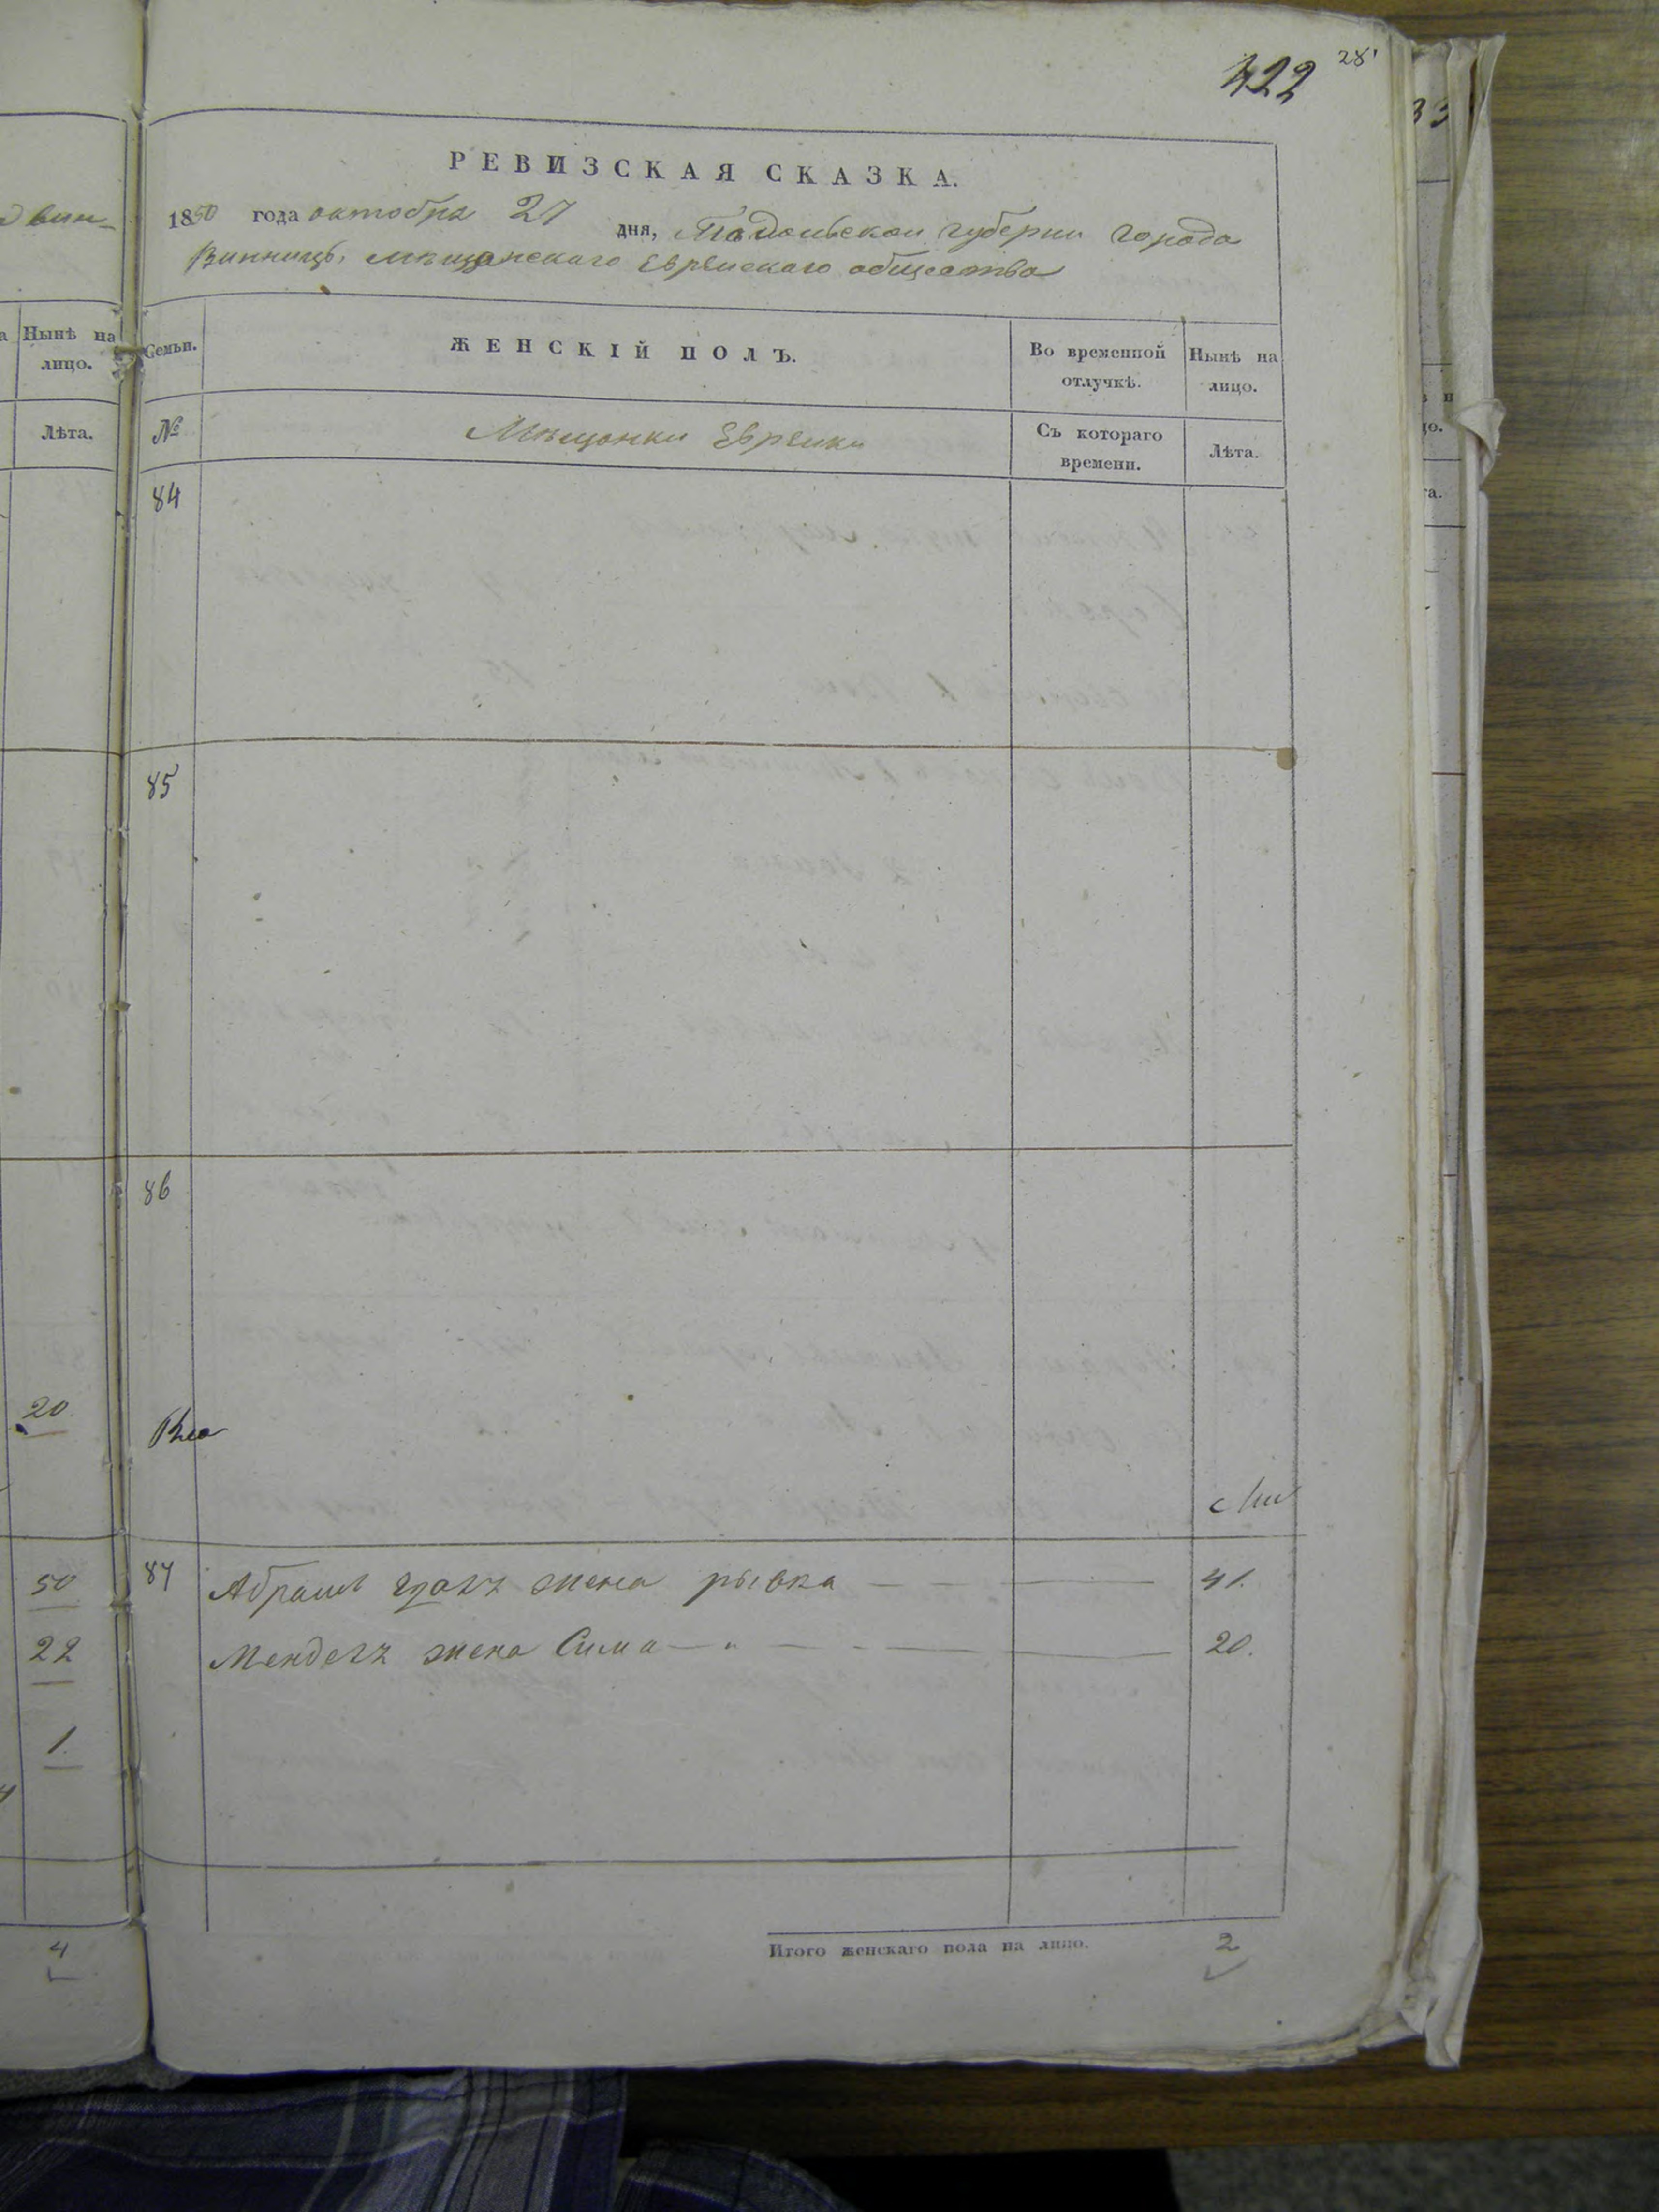 422 28
РЕВИЗСКАЯ СКАЗКА.
1850 года октобра 27 дня, Подольской губернии города
Винницы, мѣщанскаго Еврейскаго общества
Семьи.
ЖЕНСКІЙ ПОЛЪ.
Во временной отлучкѣ.
Нынѣ на лицо.
№
Мѣщанки Еврейки
Съ котораго времени.
Лѣта.
84
85
86
87 Абрама жена рывка 41.
Мендель жена Сима 20.
Итого женскаго пола на лицо. 2
Нынѣ на лицо.
Лѣта.
20
50
22
1
4
33